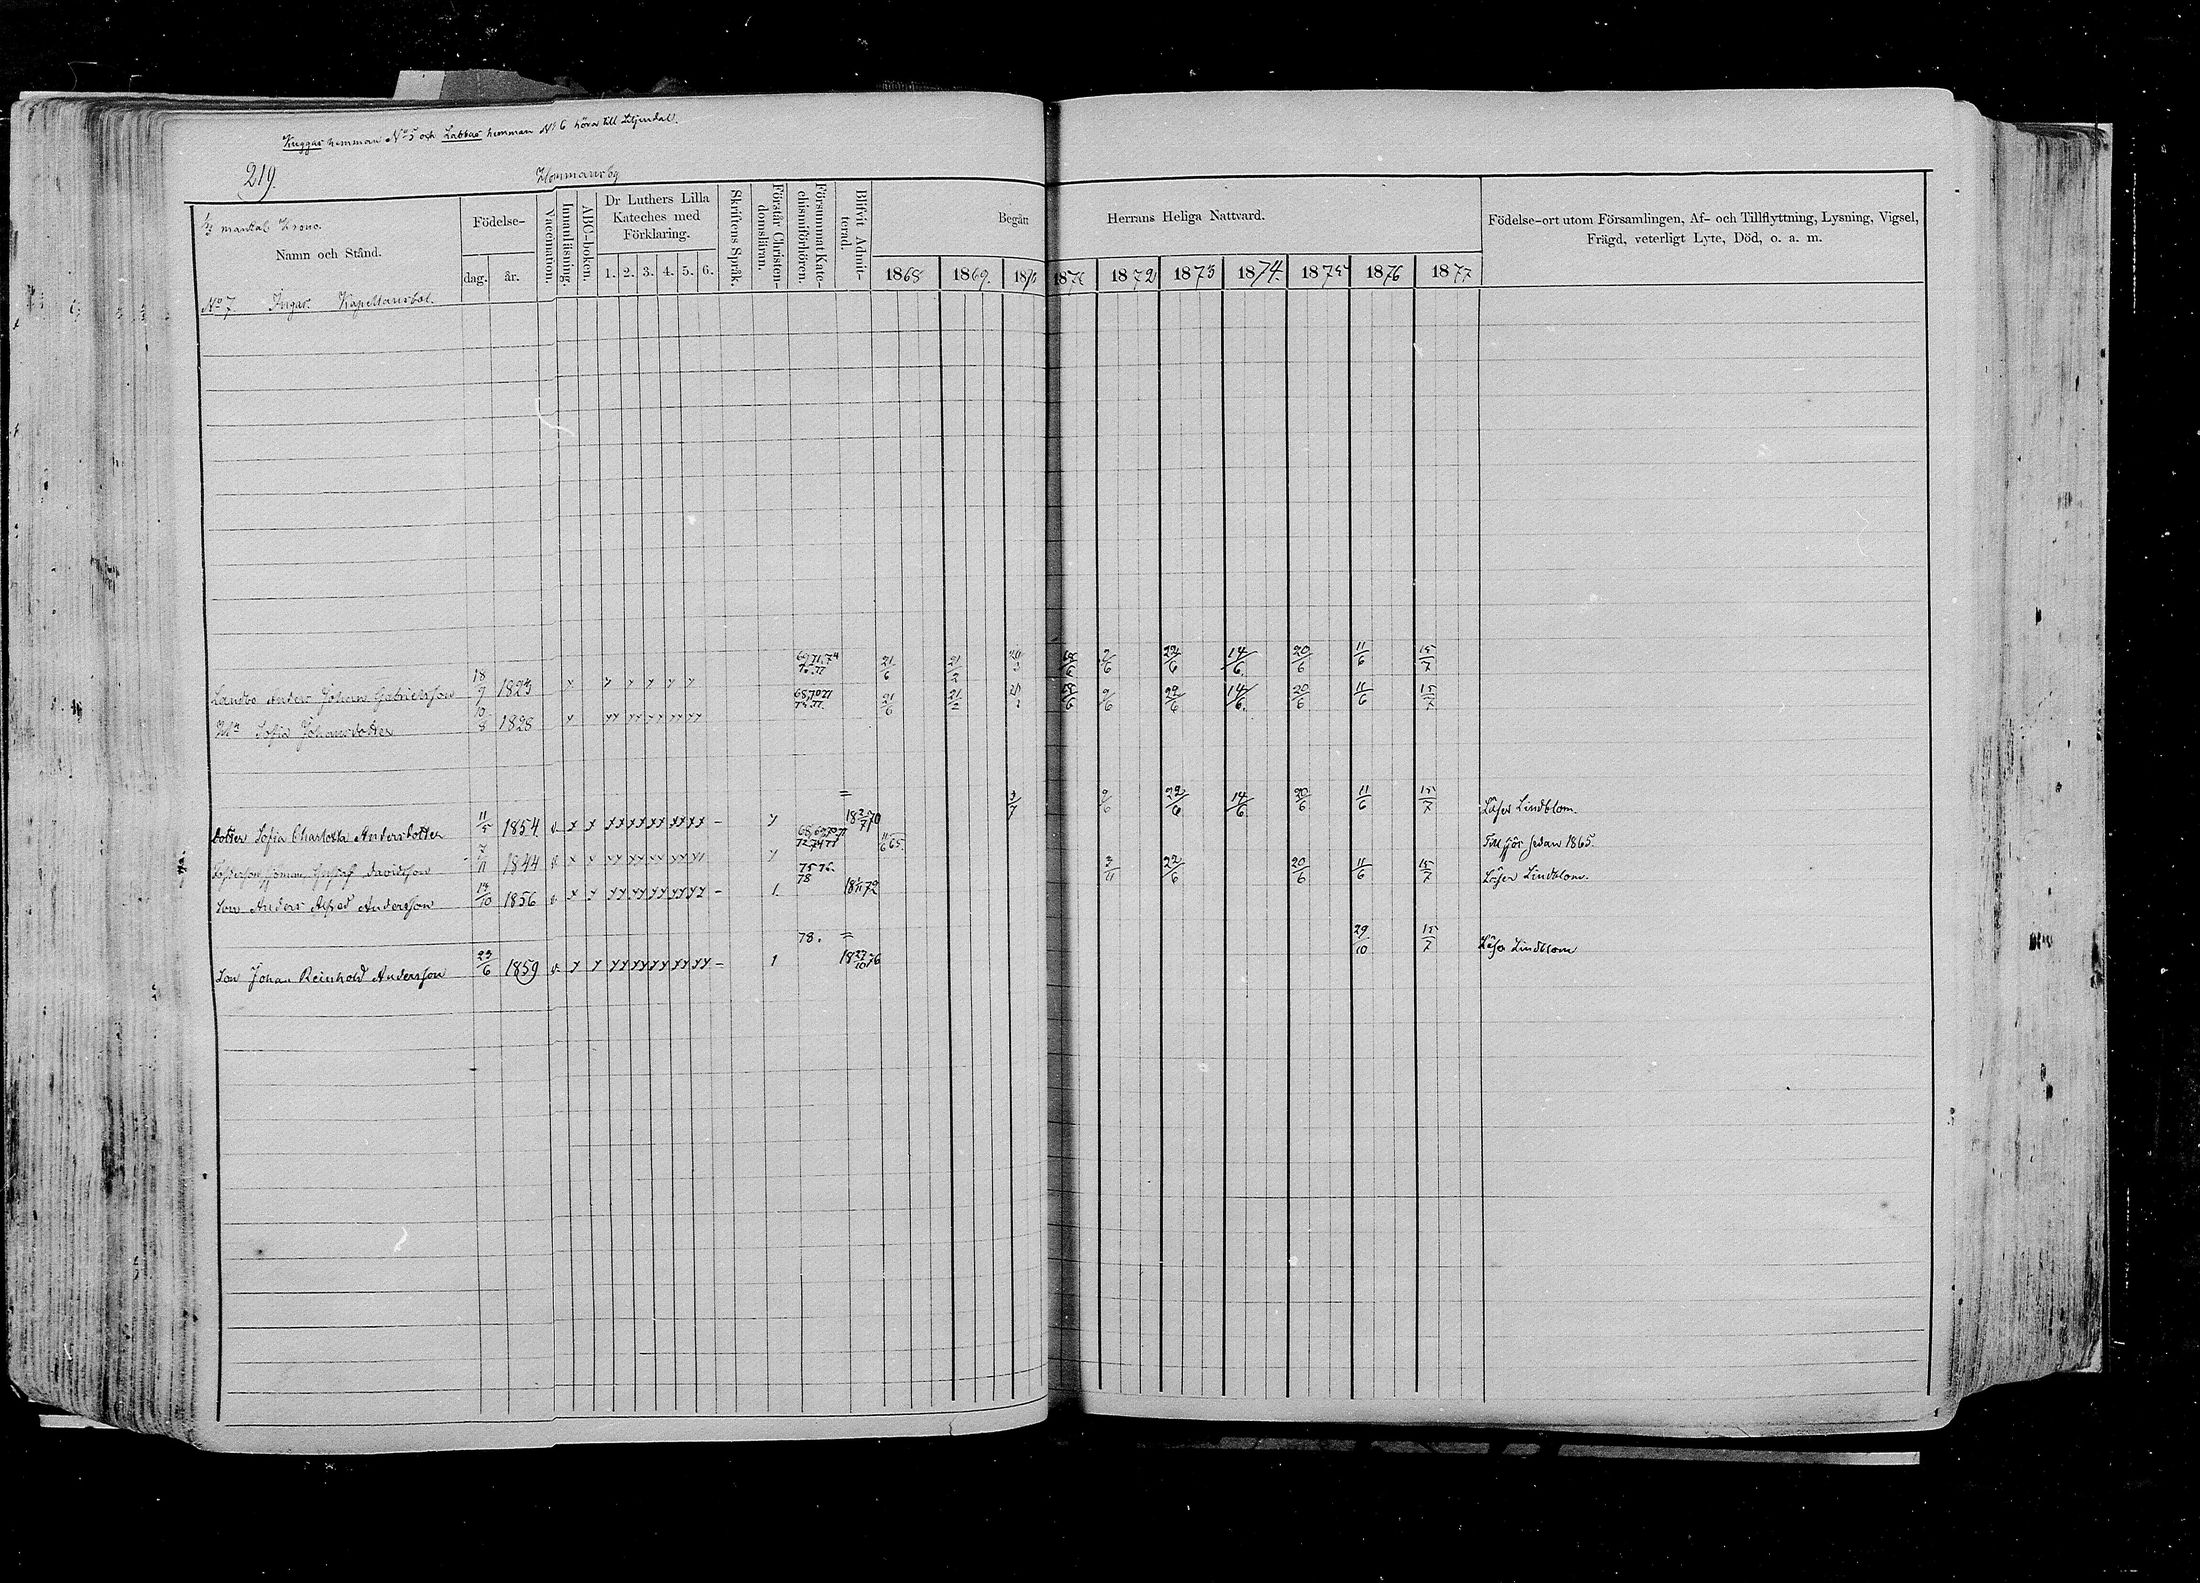 Kuggas hemman No 5 och Labbas hemman No 6 höra till Liljendal.
219.
Hommansby
1/2 mantal Krono.
Namn och Stånd.
Födelse-
dag.
år.
Vaccination.
Innanläsning.
ABC-boken.
Dr Luthers Lilla Kateches med Förklaring.
1. 2. 3. 4. 5. 6.
Skriftens Språk.
Förstår Christendomsläran.
Försummat Katechismiförhören.
Blifvit Admitterad.
Begått Herrans Heliga Nattvard.
1868 1869. 1870 1871 1872 1873 1874. 1875 1876 1877
Födelse-ort utom Församlingen, Af- och Tillflyttning, Lysning, Vigsel,
Frägd, veterligt Lyte, Död, o. a. m.
No 7. Ingas. Kapellansbol.
Landbo Anders Johan Gabrielsson 18/7 1823 21/6 21/2 9/6 22/6 14/6. 20/6 11/6 15/7
H:u Sofia Johansdotter 10/8 1828 21/6 9/6 22/6 14/6. 20/6 11/6 15/7
dotter Sofia Charlotta Andersdotter 11/5 1854 v. 18 2/7 70 3/7 9/6 22/6 14/6. 20/6 11/6 15/7 Läser Lindblom.
Gustaf Davidsson 7/11 1844 v. Till sjös sedan 1865.
Son Anders Alfred Andersson 14/10 1856 v. 75 76. 78 18 1/11 72 3/11 22/6 20/6 11/6 15/7 Läser Lindblom.
Son Johan Reinhold Andersson 23/6 1859 v. 78. 18 27/10 76 29/10 15/7 Läser Lindblom